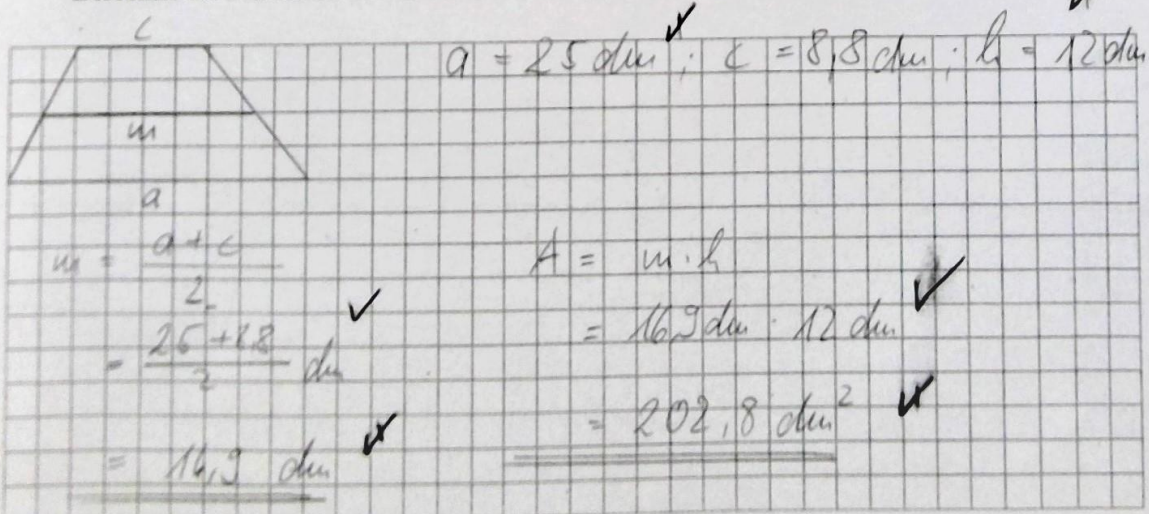 c
a = 25 dm ; c = 8,8 dm ; h = 12 dm
m
a
m = a + c / 2
= 25 + 8,8 / 2 dm
= 16,9 dm
A = m · h
= 16,9 dm · 12 dm
= 202,8 dm²